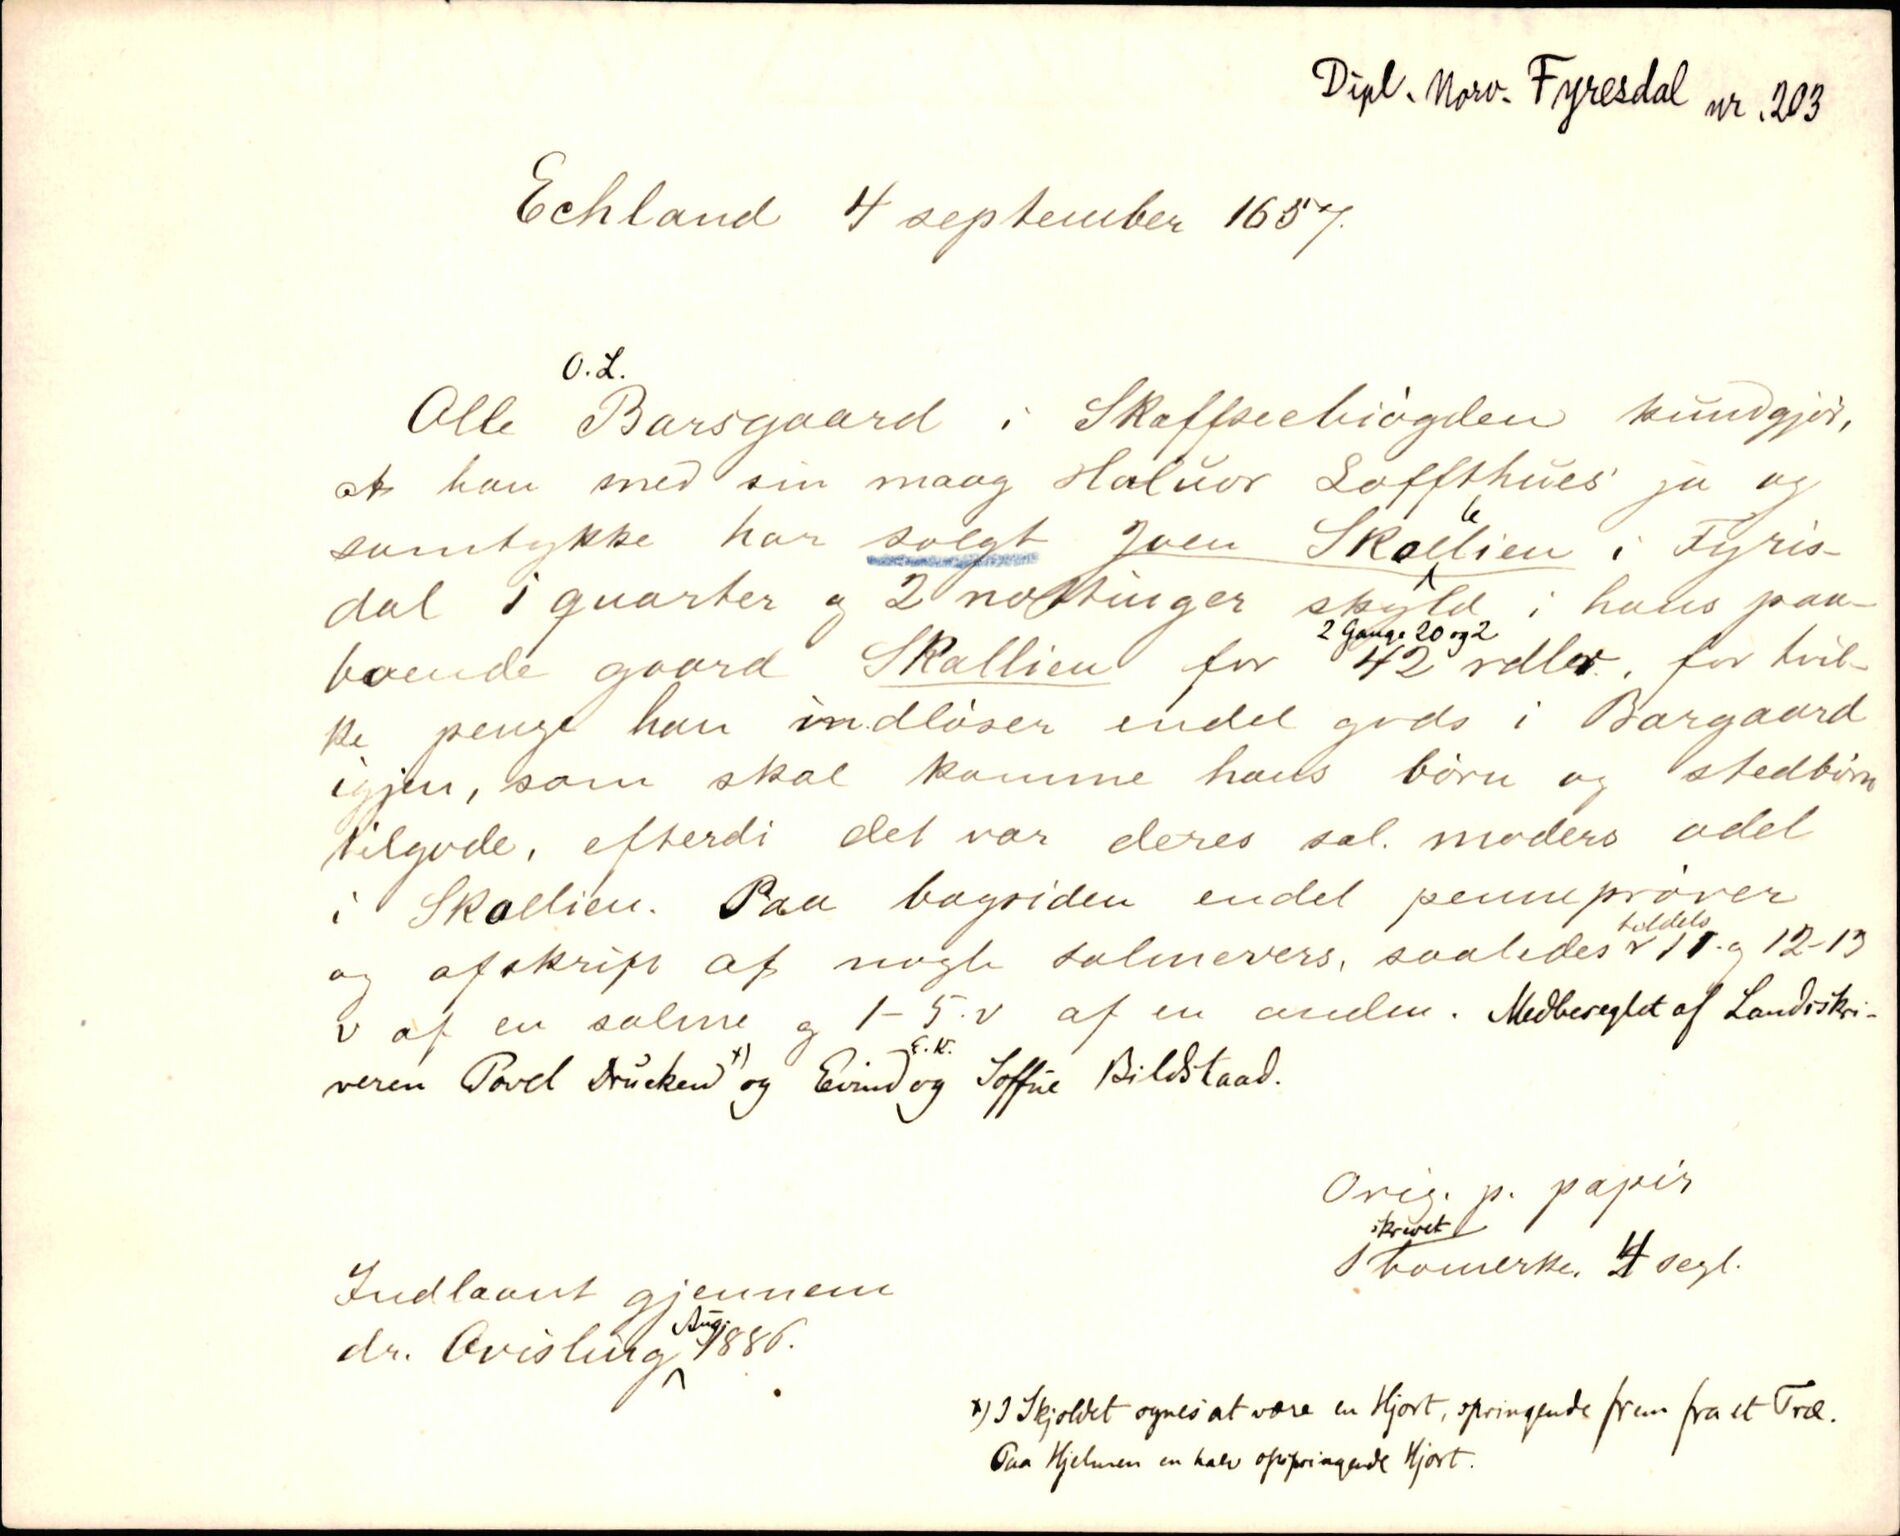 Dipl. Norv. Fyresdal nr. 203
Echland 4 september 1657.
O.L.
Olle Barsgaard i Skaffseebiøgden kundgjør,
at han med sin maag Haluor Loffthues ja og
samtykke har solgt Joen Skallien i Fyris-
dal 1 quarter og 2 nottinger skyld i hans paa-
2 Gange 20 og 2
boende gaard Skallien for 42 rdler., for hvil-
ke penge han indløser endel gods i Bargaard
igjen, som skal komme hans børn og stedbørn
tilgode, efterdi det var deres sal. moders odel
i Skallien. Paa bagsiden endel penneprøver
tildels
og afskrift af nogle salmevers, saaledes v 11. og 12-13
v af en salme og 1-5. v af en anden. Medbeseglet af Landsskri-
E. K.
veren Povel Drucken x) og Eivind og Soffue Bildstaad.
Orig. p. papir
skrevet
1 bomerke. 4 segl.
Indlaant gjennem
dr. Qvisling Aug. 1886.
x) I Skjoldet synes at være en Hjort, springende frem fra et Træ.
Paa Hjelmen en halv opspringende Hjort.